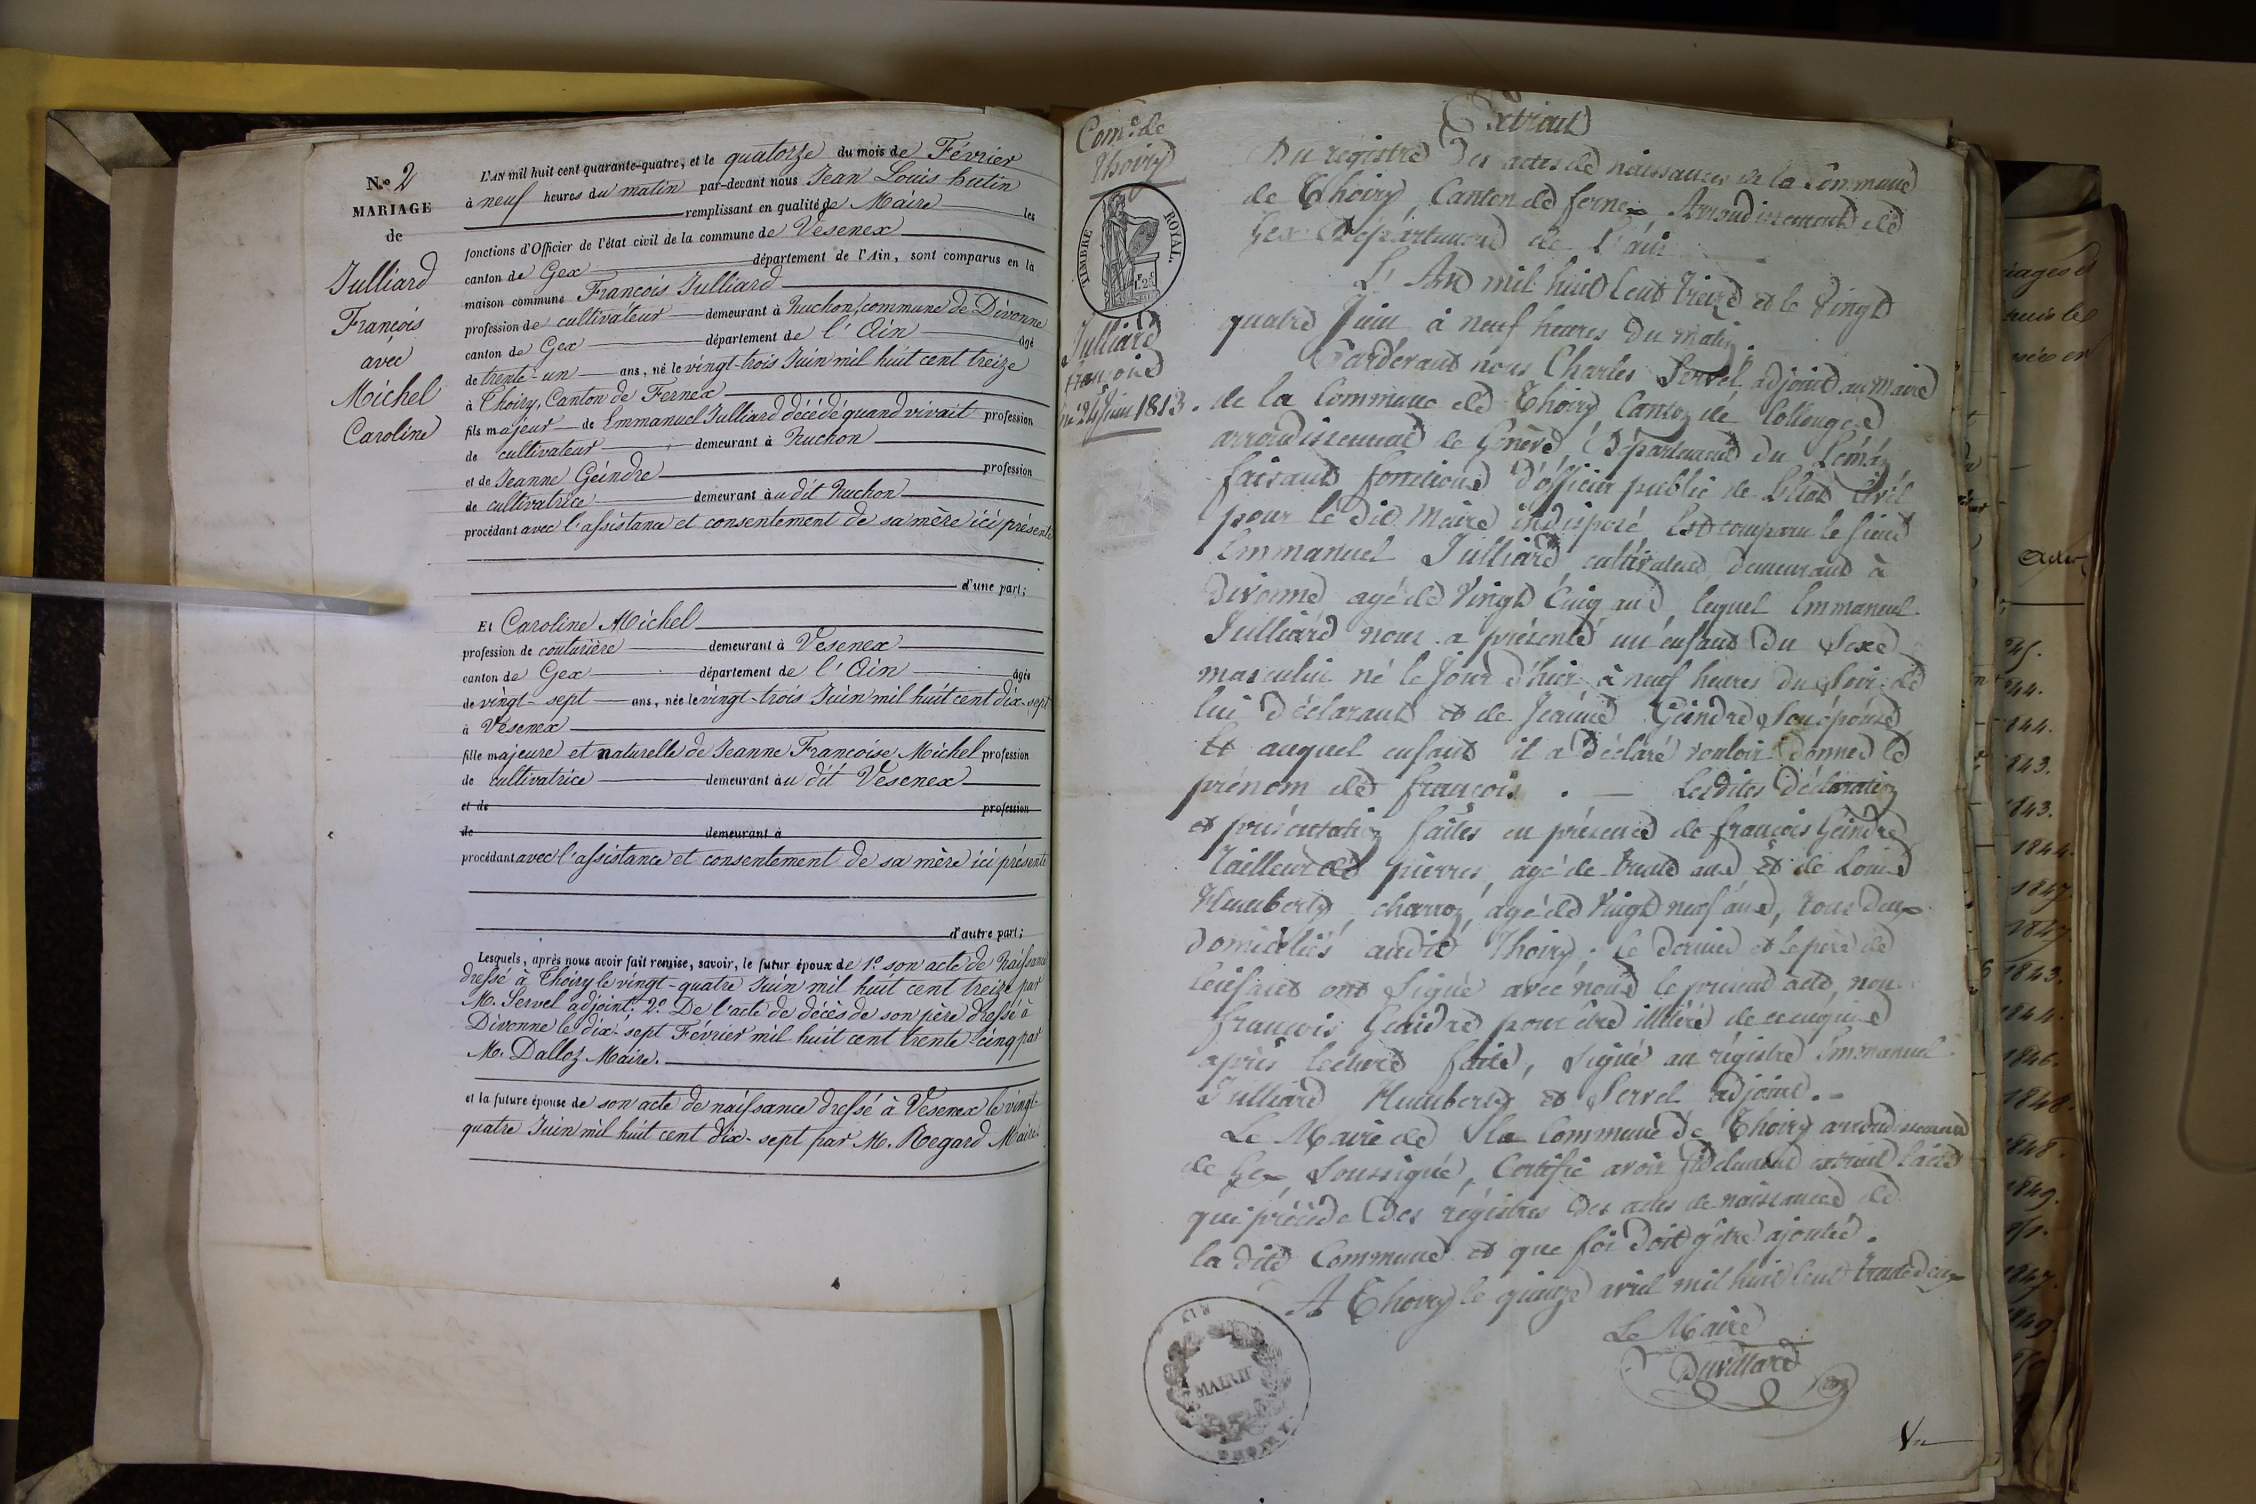 N.o 2
MARIAGE
de
Julliard
François
avec
Michel
Caroline
L'AN mil huit cent quarante-quatre, et le quatorze du mois de Février
à neuf heures du matin par-devant nous Jean Louis hutin
remplissant en qualité de Maire les
fonctions d'Officier de l'état civil de la commune de Vesenex
canton de Gex département de l'Ain, sont comparus en la
maison commune François Julliard
profession de cultivateur demeurant à Ruchon, commune de Divonne
canton de Gex département de l'Ain âgé
de trente-un ans, né le vingt-trois Juin mil huit cent treize
à Thoiry, Canton de Fernex
fils majeur de Emmanuel Julliard décédé quand vivait profession
de cultivateur demeurant à Ruchon
et de Jeanne Geindre profession
de cultivatrice demeurant au dit Ruchon
procédant avec l'assistance et consentement de sa mère ici présente
d'une part;
Et Caroline Michel
profession de couturière demeurant à Vesenex
canton de Gex département de l'Ain âgée
de vingt-sept ans, née le vingt-trois Juin mil huit cent dix-sept
à Vesenex
fille majeure et naturelle de Jeanne Françoise Michel profession
de cultivatrice demeurant au dit Vesenex
et de profession
de demeurant à
procédant avec l'assistance et consentement de sa mère ici présente
d'autre part;
Lesquels, après nous avoir fait remise, savoir, le futur époux de 1.o son acte de Naissance
dressé à Thoiry le vingt-quatre Juin mil huit cent treize par
M. Servel adjoint; 2.o De l'acte de décès de son père dressé à
Divonne le dix-sept Février mil huit cent trente-cinq par
M. Dalloz Maire.
et la future épouse de son acte de naissance dressé à Vesenex le vingt-
quatre Juin mil huit cent dix-sept par M. Regard Maire.
Com.e de
Thoiry
TIMBRE ROYAL.
Julliard
françois
né 23 Juin 1813.
Extrait
Du régistre des actes de naissances de la Commune
de Thoiry, Canton de fernex, Arrondissement de
Gex Département de l'ain
L'An mil huit Cent treize et le vingt
quatre Juin à neuf heures du matin.
Pardevant nous Charles Servel, adjoint au maire
de la Commune de Thoiry, Canton de Collonges
arrondissement de Genève, Département du Léman
faisant fonctions d'officier public de l'état Civil
pour le dit Maire indisposé Est comparu le sieur
Emmanuel Julliard cultivateur demeurant à
Divonne agé de vingt Cinq ans, lequel Emmanuel
Julliard nous a présenté un enfant du Sexe
masculin né le jour d'hier à neuf heures du Soir de
lui déclarant et de Jeanne Geindre Son épouse
Et auquel enfant il a déclaré vouloir donner le
prénom de françois. — Lesdites déclaration
et présentation faites en présence de françois Geindre
Tailleur de pierres, agé de trente ans et de Louis
Humbert, charron, agé de vingt neuf ans, tous deux
domiciliés audit Thoiry. Ce dernier et le père de
l'enfant ont Signé avec nous le présent acte, non
françois Geindre pour être illitéré de ce enquis
après lecture faite, Signé au régistre Emmanuel
Julliard Humbert et Servel adjoint.
Le Maire de la Commune de Thoiry arrondissement
de Gex, Soussigné, Certifie avoir fidelement extrait l'acte
qui précède des régistres des actes de naissances de
la dite Commune et que foi doit y être ajoutée.
A Thoiry le quinze avril mil huit Cent trente deux
Le Maire
Duvillard
MAIRIE
THOIRY
1843.
1843.
1844.
1847.
1847.
1843.
1844.
1846.
1848.
1848.
1849.
1847.
1849.